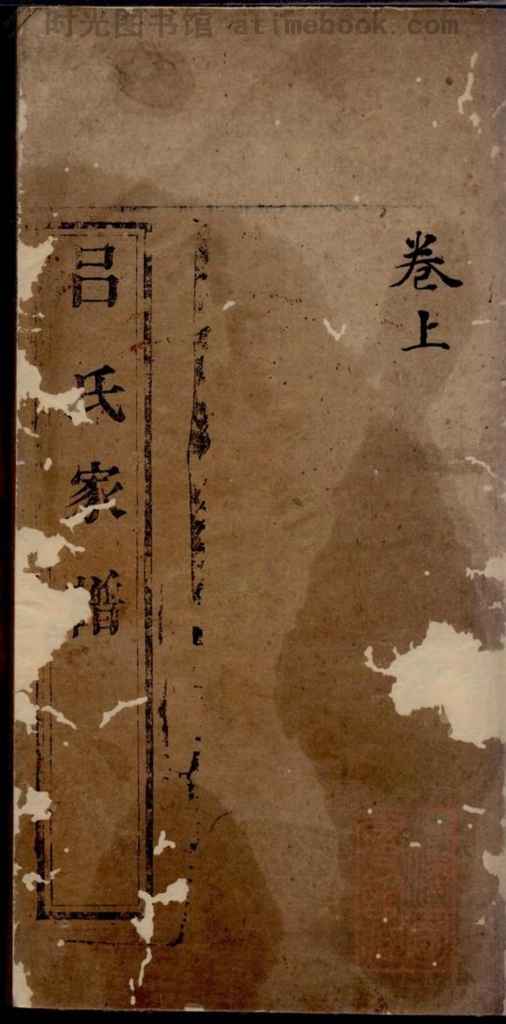 时光图书馆 atimebook.com
卷上
吕氏家譜